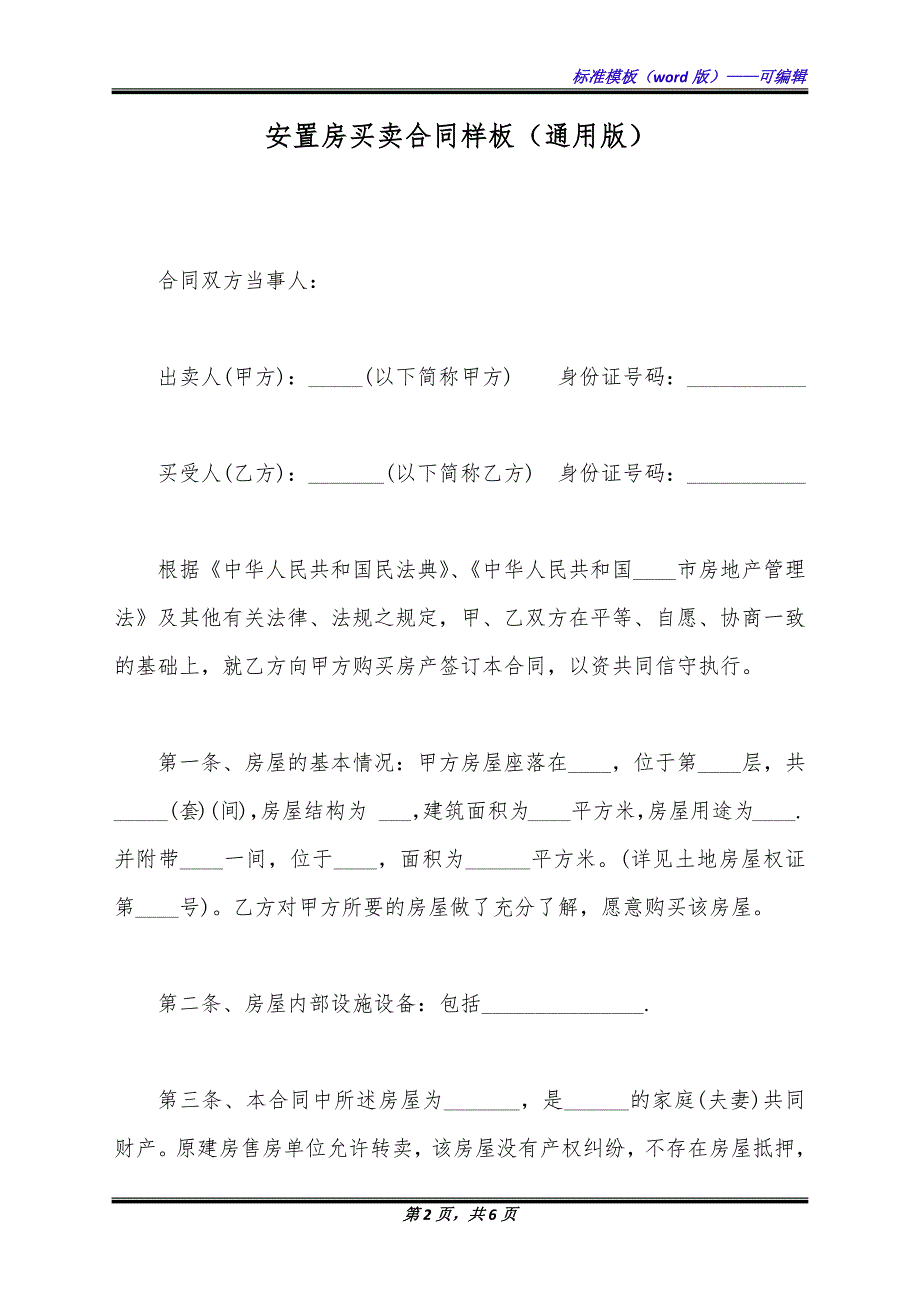 标准模板（word 版）——可编辑
安置房买卖合同样板（通用版）
合同双方当事人：
出卖人(甲方)：_____(以下简称甲方)　　身份证号码：___________
买受人(乙方)：_______(以下简称乙方)　身份证号码：___________
根据《中华人民共和国民法典》、《中华人民共和国____市房地产管理
法》及其他有关法律、法规之规定，甲、乙双方在平等、自愿、协商一致
的基础上，就乙方向甲方购买房产签订本合同，以资共同信守执行。
第一条、房屋的基本情况：甲方房屋座落在____，位于第____层，共
_____(套)(间),房屋结构为 ___,建筑面积为____平方米,房屋用途为____.
并附带____一间，位于____，面积为______平方米。(详见土地房屋权证
第____号)。乙方对甲方所要的房屋做了充分了解，愿意购买该房屋。
第二条、房屋内部设施设备：包括_______________.
第三条、本合同中所述房屋为_______，是______的家庭(夫妻)共同
财产。原建房售房单位允许转卖，该房屋没有产权纠纷，不存在房屋抵押，
第 2 页，共 6 页